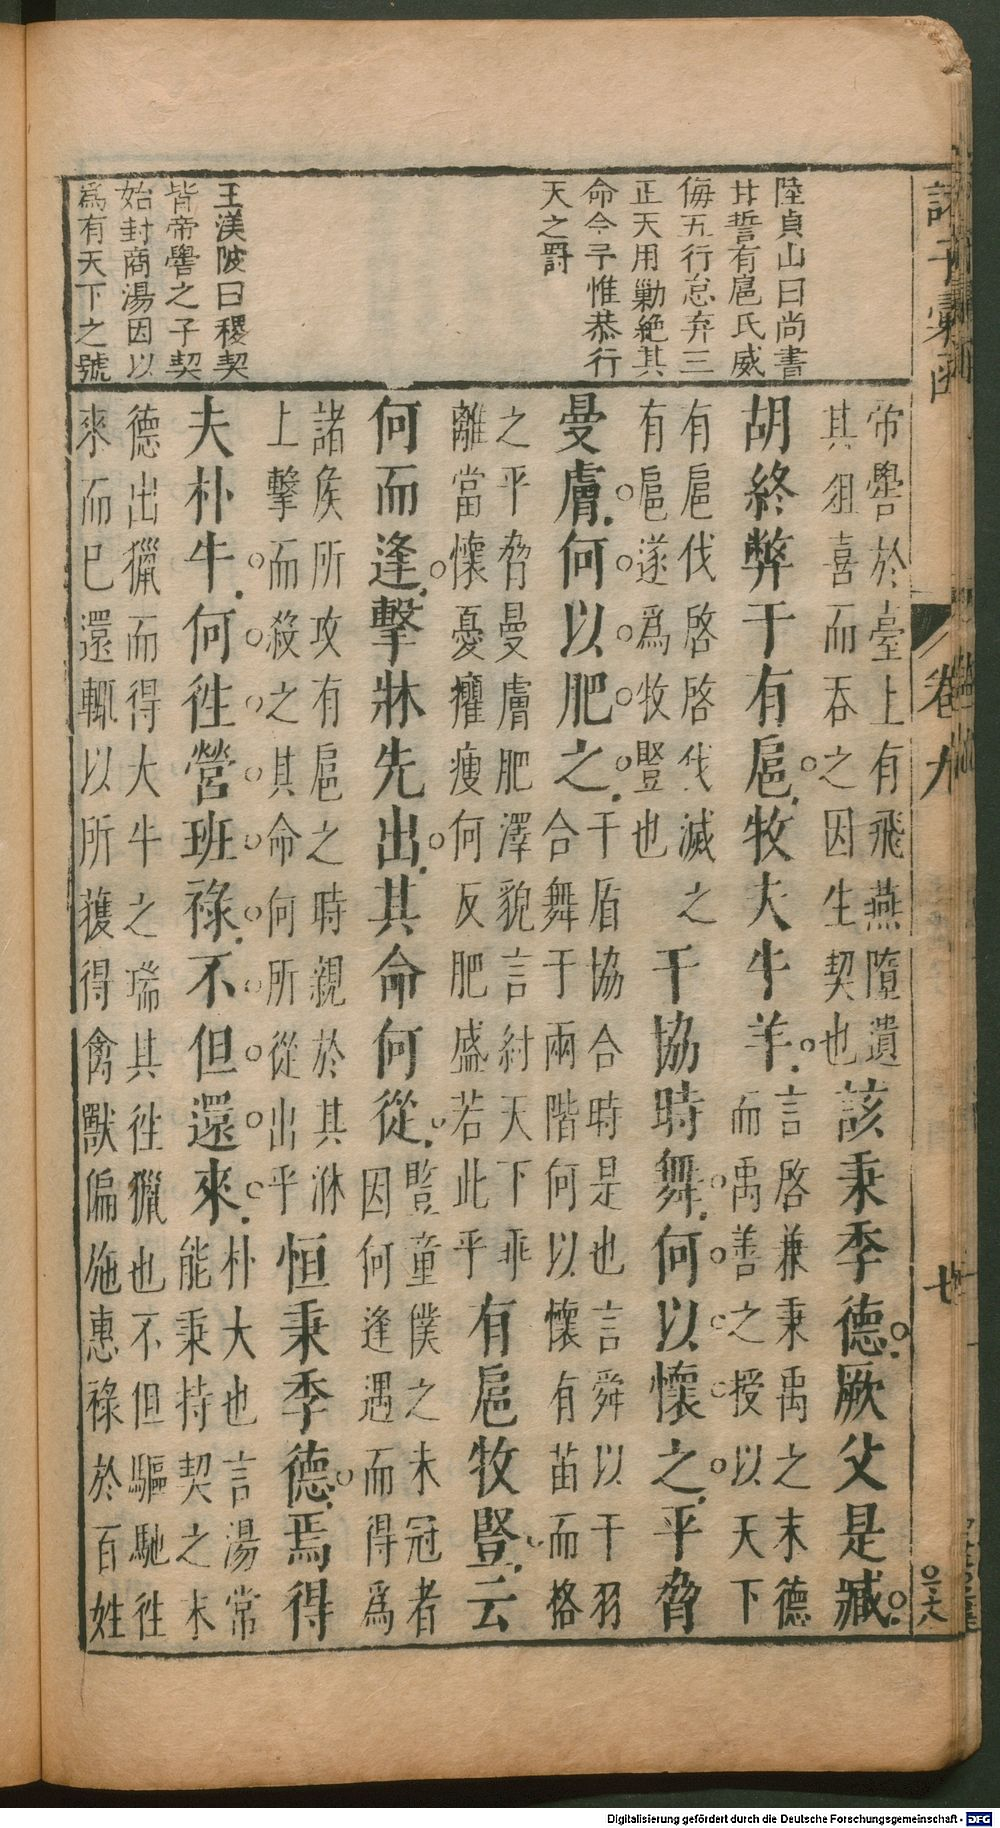 陸貞山曰尚書
甘誓有扈氏威
侮五行怠弃三
正天用勦絶其
命今予惟恭行
天之罸
王渼陂曰稷契
皆帝嚳之子契
始封商湯因以
爲有天下之號
帝嚳於臺上有飛燕墮遺
其𡖉喜而吞之因生契也
該秉季德厥父是臧
胡終弊于有扈牧夫牛羊
言啓兼秉禹之末德
而禹善之授以天下
有扈伐啓啓伐滅之
有扈遂爲牧豎也
干協時舞何以懷之平脅
曼膚何以肥之
干盾協合時是也言舜以干羽
合舞于兩階何以懷有苗而格
之平脅曼膚肥澤貌言紂天下乖
離當懷憂癯瘦何反肥盛若此乎
有扈牧豎云
何而逢擊牀先出其命何從
豎童僕之未冠者
因何逢遇而得爲
諸侯所攻有扈之時親於其牀
上擊而殺之其命何所從出乎
恒秉季德焉得
夫朴牛何徃營班祿不但還來
朴大也言湯常
能秉持契之末
德出獵而得大牛之瑞其徃獵也不但驅馳徃
來而巳還輒以所獲得禽獸偏施惠祿於百姓
諸子彙函
卷九
廿